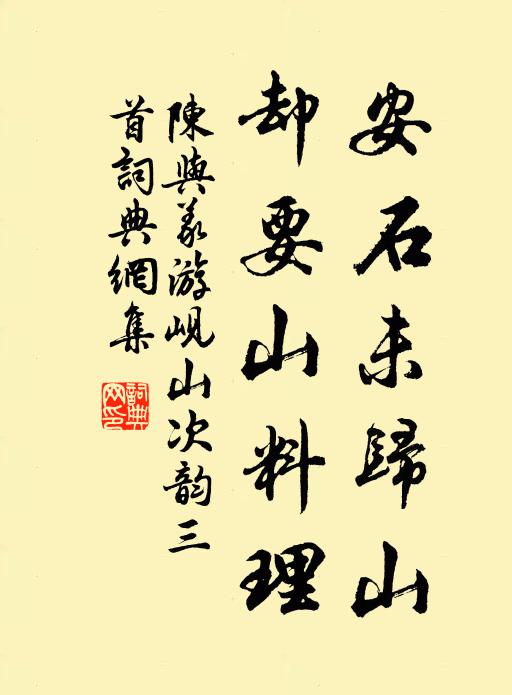 安石未歸山
却要山料理
陳與義游峴山次韵三
首詞典網集
詞典
网印